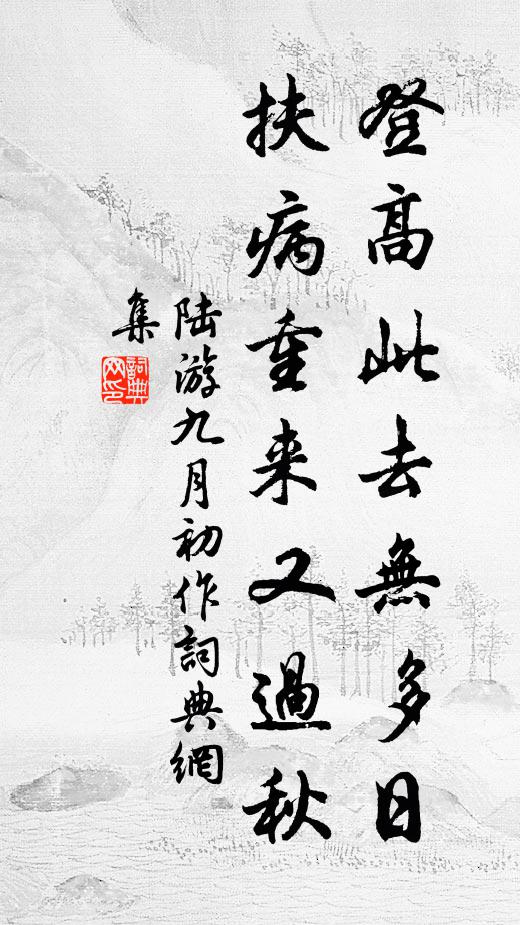 登高此去無多日
扶病重来又過秋
陆游九月初作詞典網
集
詞典
网印